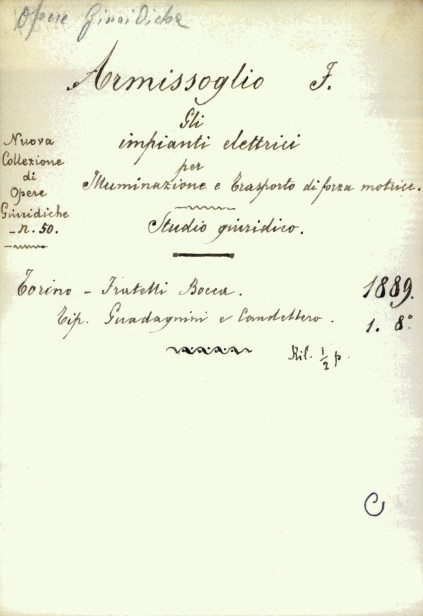 Opere Giuridiche
Armissoglio F.
Gli
impianti elettrici
per
Illuminazione e Trasporto di forza motrice.
Studio giuridico.
Nuova
Collezione
di
Opere
Giuridiche
- n. 50.
Torino - Fratelli Bocca. 1889.
Tip. Guadagnini e Candellero. 1. 8°
Ril. 1/2 p.
C